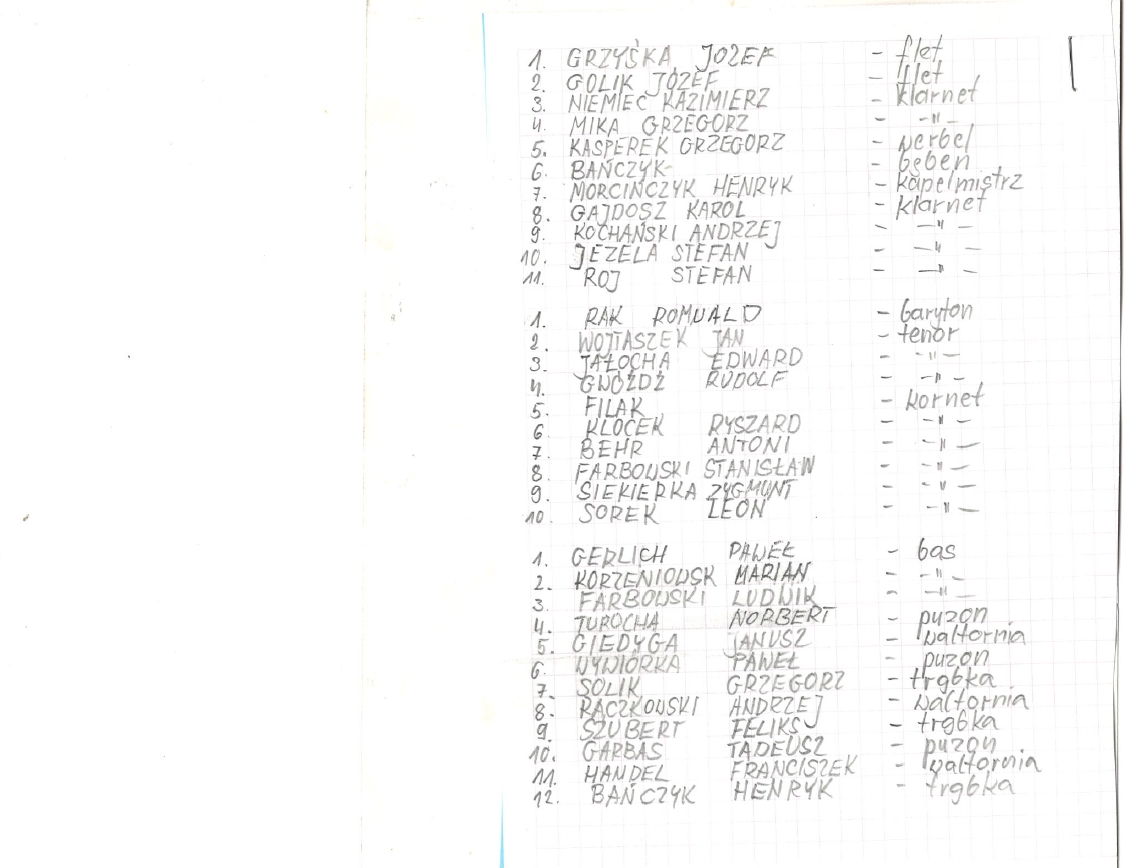 1. GRZYŚKA JÓZEF - flet
2. GOLIK JÓZEF - flet
3. NIEMIEC KAZIMIERZ - klarnet
4. MIKA GRZEGORZ - -"-
5. KASPEREK GRZEGORZ - werbel
6. BAŃCZYK - bęben
7. MORCIŃCZYK HENRYK - kapelmistrz
8. GAJDOSZ KAROL - klarnet
9. KOCHAŃSKI ANDRZEJ - -"-
10. JEZELA STEFAN - -"-
11. ROJ STEFAN - -"-
1. RAK ROMUALD - baryton
2. WOJTASZEK JAN - tenor
3. JAŁOCHA EDWARD - -"-
4. GWÓŹDŹ RUDOLF - -"-
5. FILAK - kornet
6 KLOCEK RYSZARD - -"-
7. BEHR ANTONI - -"-
8. FARBOWSKI STANISŁAW - -"-
9. SIEKIERKA ZYGMUNT - -"-
10. SOREK LEON - -"-
1. GERLICH PAWEŁ - bas
2. KORZENIOWSK MARIAN - -"-
3. FARBOWSKI LUDWIK - -"-
4. TUROCHA NORBERT - puzon
5. GIEDYGA JANUSZ - waltornia
6. WYWIÓRKA PAWEŁ - puzon
7. SOLIK GRZEGORZ - trąbka
8. RĄCZKOWSKI ANDRZEJ - waltornia
9. SZUBERT FELIKS - trąbka
10. GARBAS TADEUSZ - puzon
11. HANDEL FRANCISZEK - waltornia
12. BAŃCZYK HENRYK - trąbka